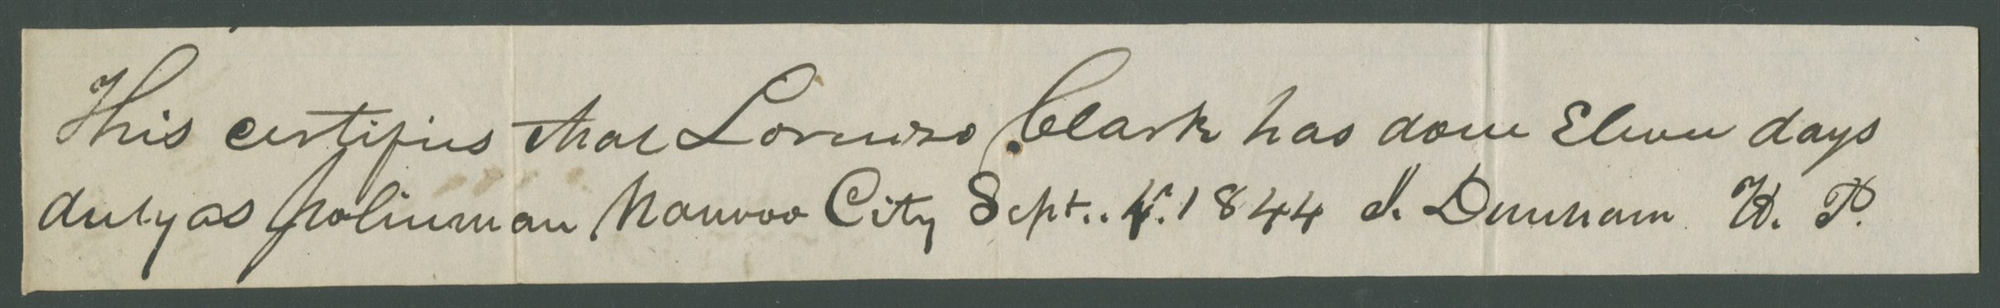 This certifies that Lorenzo Clark has done Eleven days
duty as policeman Nauvoo City Sept. 4. 1844 J. Dunham H. P.